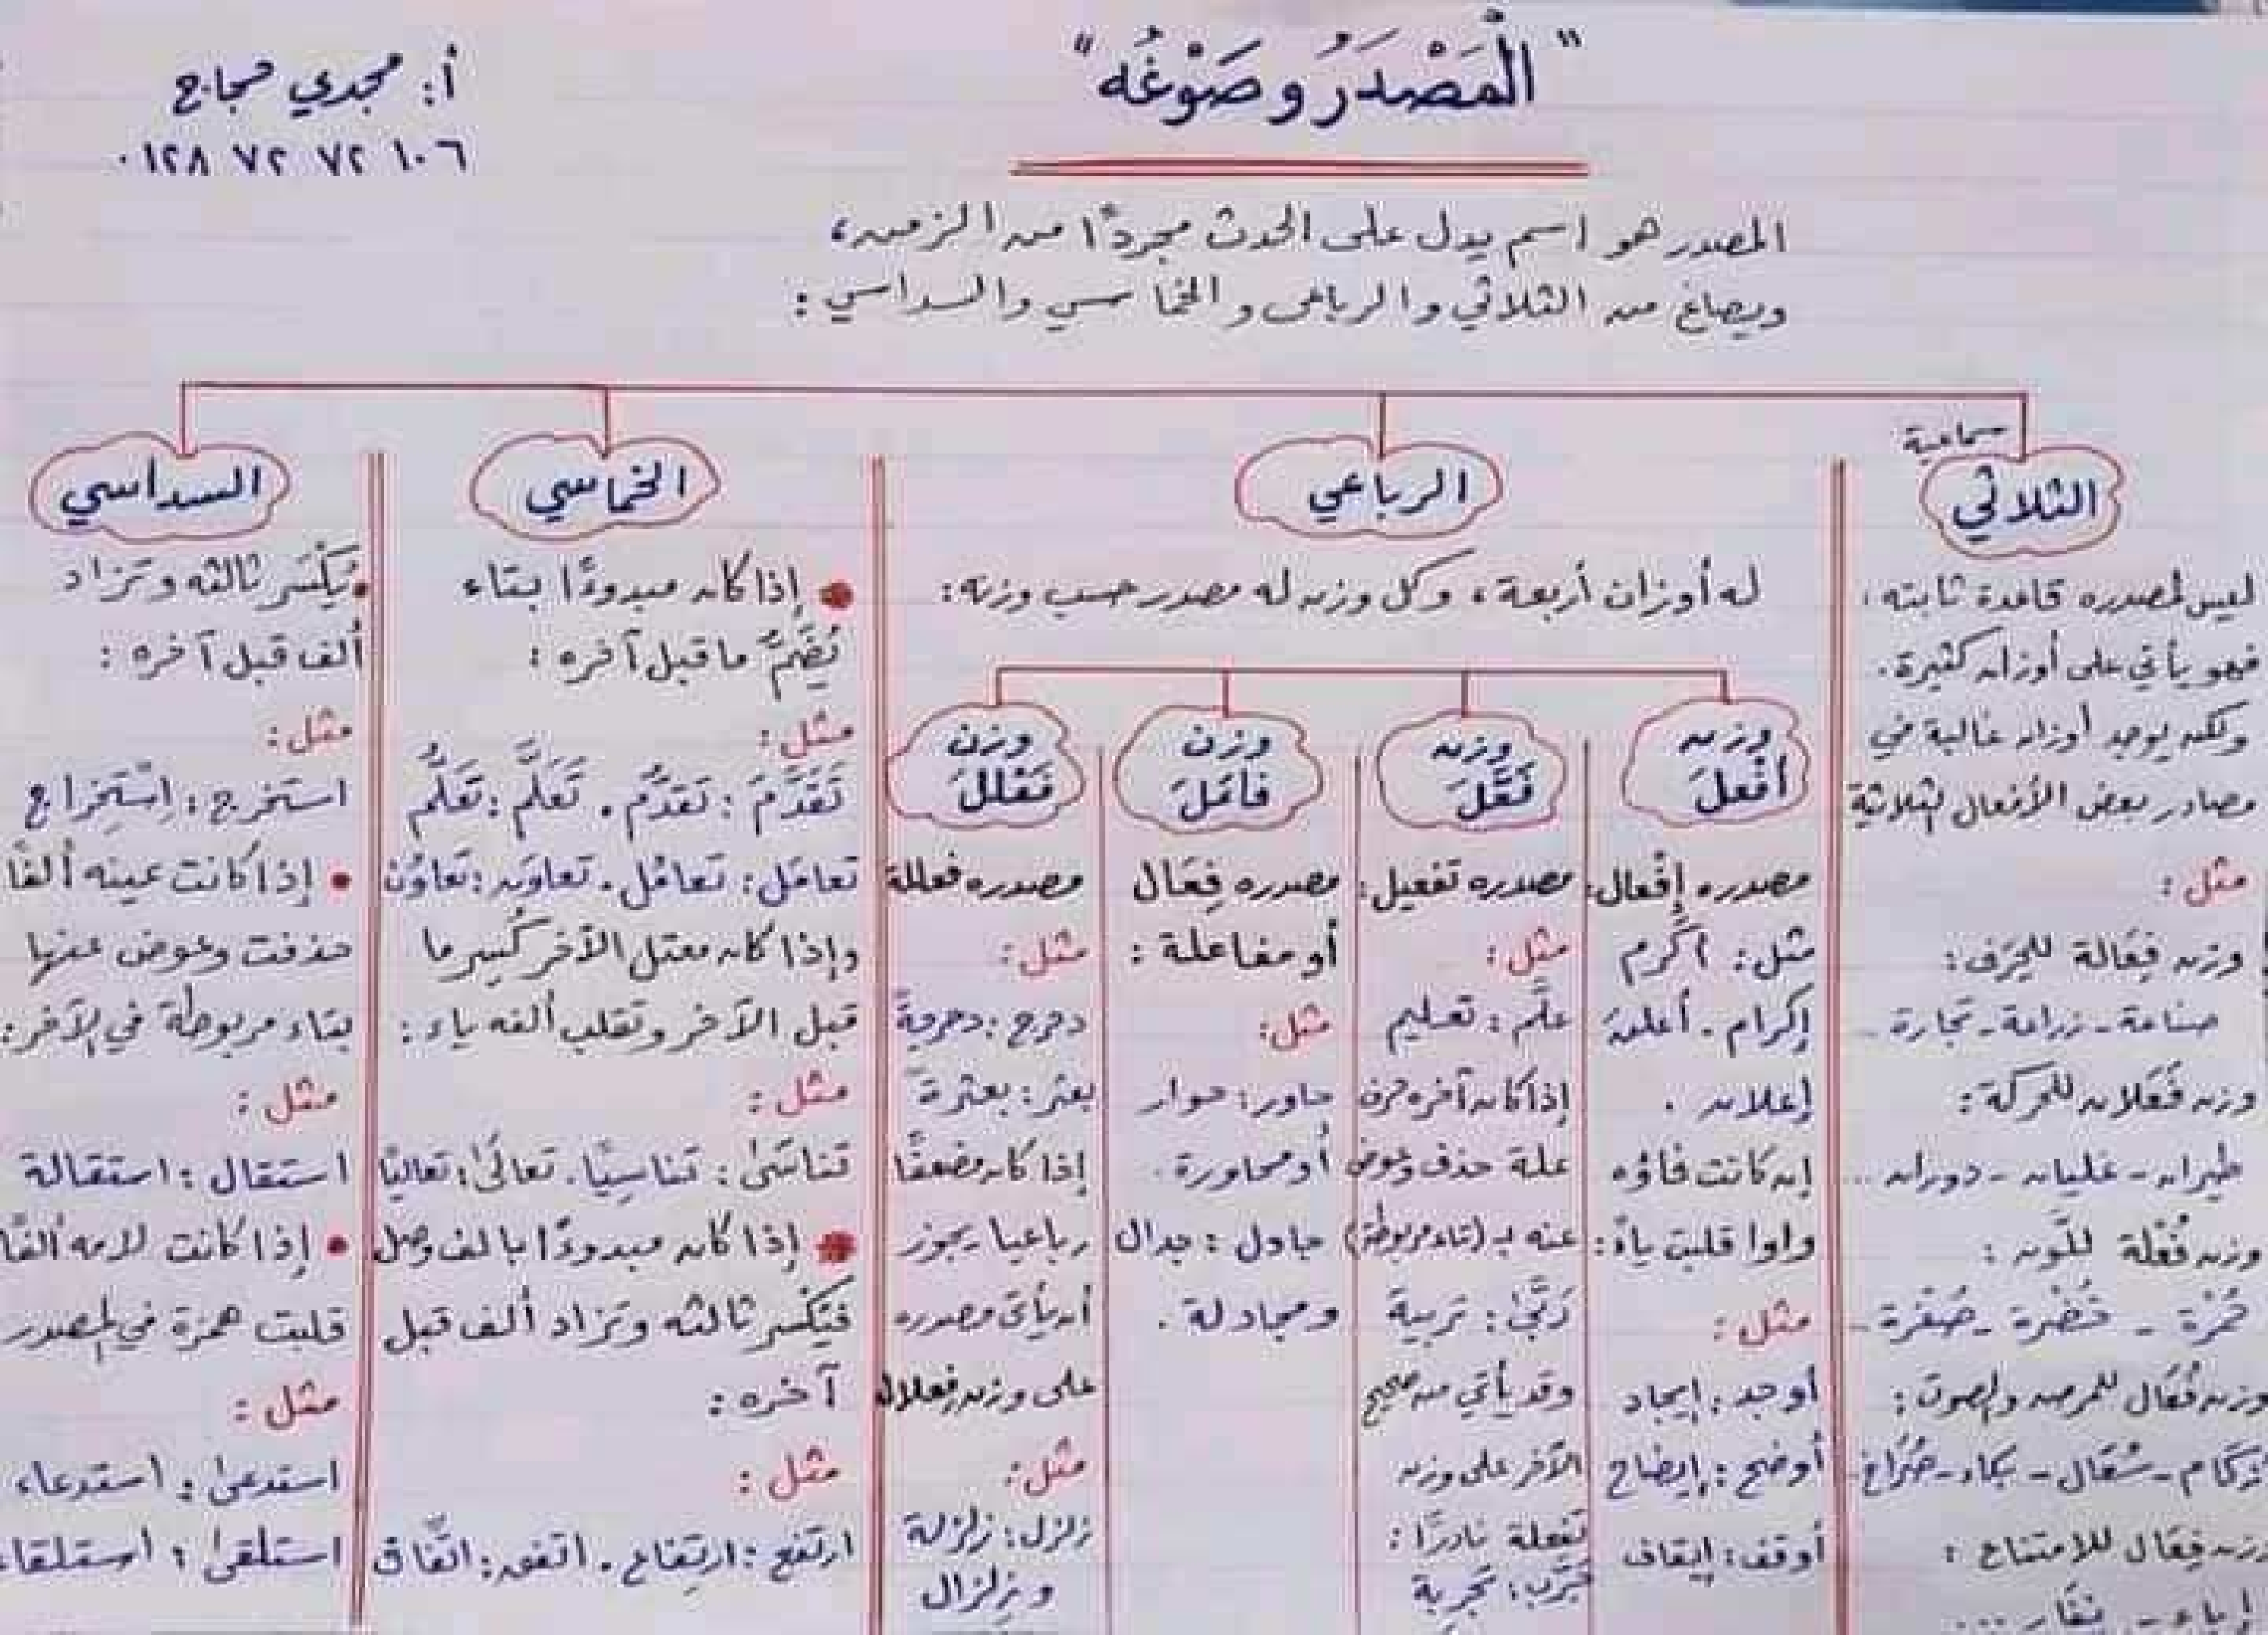 "الْمَصْدَرُ وصَوْغُه"
أ: مجدي حجاج
٠١٢٨ ٧٢ ٧٢ ١٠٦
المصدر هو اسم يدل على الحدث مجردًا من الزمن،
ويصاغ من الثلاثي والرباعى والخماسي والسداسي :
سماعية
الثلاثي
ليس لمصدره قاعدة ثابته،
فهو يأتي على أوزان كثيرة.
ولكن يوجد أوزان غالبة في
مصادر بعض الأفعال الثلاثية
مثل :
وزن فِعَالة للحِرَف :
صناعة - زراعة - تجارة -
وزن فَعَلان للحركة :
طيران - غليان - دوران ..
وزن فُعْلة للَّون :
حُمْرة - خُضْرة - صُفْرة -
وزن فُعَال للمرض والصوت :
زُكام - سُعَال - بكاء - صُرَاخ
وزن فِعَال للامتناع :
إباء - نِفَار ...
الرباعي
له أوزان أربعة، وكل وزن له مصدر حسب وزنه :
وزن
أفْعلَ
مصدره إفْعال:
مثل : أكْرم
إكرام . أعلن
إعلان .
إن كانت فاؤه
واوا قلبت ياءً :
مثل :
أوجد : إيجاد
أوضح : إيضاح
أوقف : إيقاف
وزن
فَعَّلَ
مصدره تفعيل :
مثل :
علَّم : تعليم
إذا كان آخره حرف
علة حذف وعوض
عنه بـ (تاء مربوطة)
رَبَّىٰ : تربية
وقد يأتي من صحيح
الآخر على وزن
تفعلة نادرًا :
جَرَّب : تجربة
وزن
فاعَلَ
مصدره فِعَال
أو مفاعلة :
مثل :
حاور : حوار
أو محاورة .
جادل : جدال
ومجادلة .
وزن
فَعْللَ
مصدره فعللة
مثل :
دحرج : دحرجةً
بعثر : بعثرةً
إذا كان مضعفًا
رباعيا يجوز
أن يأتى مصدره
على وزن فِعلال
مثل :
زلزل : زلزلة
وزِلزال
الخماسي
• إذا كان مبدوءًا بتاء
يُضَمُّ ما قبل آخره :
مثل :
تَقَدَّمَ : تَقدُّم . تَعَلَّم : تَعَلُّم
تعامَل : تعامُل . تعاوَن : تعاوُن
وإذا كان معتل الآخر كُسِر ما
قبل الآخر وتقلب ألفه ياء :
مثل :
تناسَىٰ : تناسِيًا . تعالَىٰ : تعاليًا
• إذا كان مبدوءًا بألف وصل
فيُكْسر ثالثه وتزاد ألف قبل
آخره :
مثل :
ارتفع : ارتِفاع . اتفق : اتِّفاق
السداسي
• يُكْسَر ثالثه وتزاد
ألف قبل آخره :
مثل :
استخرج : اسْتِخراج
• إذا كانت عينه ألفًا
حذفت وعوض عنها
بتاء مربوطة في الآخر :
مثل :
استقال : استقالة
• إذا كانت لامه ألفًا
قلبت همزة في المصدر
مثل :
استدعىٰ : استدعاء
استلقىٰ : استلقاء